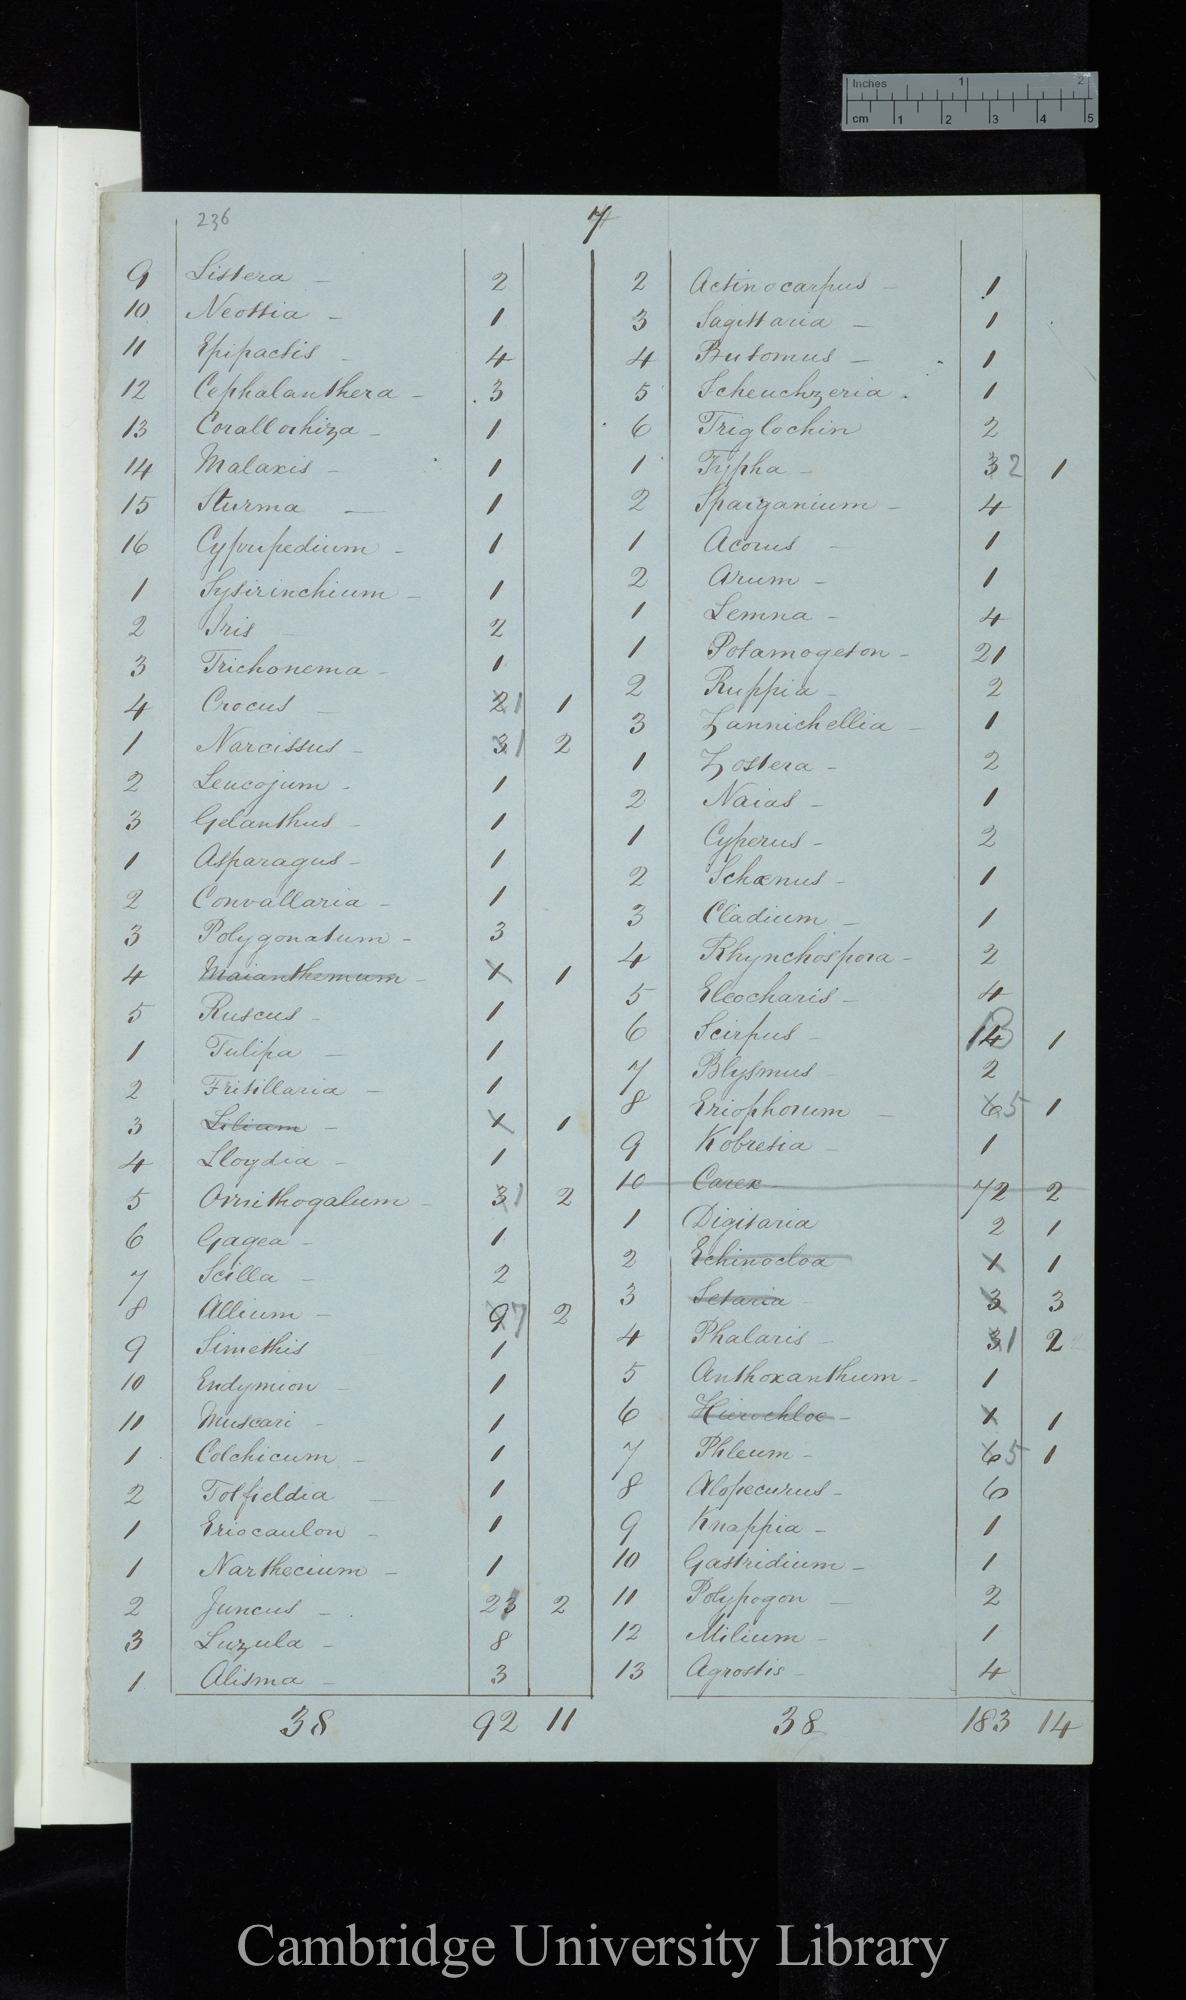 Inches 1 2
cm 1 2 3 4 5
236
7
9 Listera – 2
10 Neottia – 1
11 Epipactis – 4
12 Cephalanthera – 3
13 Corallorhiza – 1
14 Malaxis – 1
15 Sturma — 1
16 Cypripedium – 1
1 Sysirinchium – 1
2 Iris – 2
3 Trichonema – 1
4 Crocus – 2 1 1
1 Narcissus – 3 1 2
2 Leucojum – 1
3 Gelanthus – 1
1 Asparagus – 1
2 Convallaria – 1
3 Polygonatum – 3
4 Maianthemum – 1 1
5 Ruscus – 1
1 Tulipa – 1
2 Fritillaria – 1
3 Lilium – 1 1
4 Lloydia – 1
5 Ornithogalum – 3 1 2
6 Gagea – 1
7 Scilla – 2
8 Allium – 9 7 2
9 Simethis 1
10 Endymion – 1
11 Muscari – 1
1 Colchicum – 1
2 Tolfieldia — 1
1 Eriocaulon – 1
1 Narthecium – 1
2 Juncus – 23 2
3 Luzula – 8
1 Alisma – 3
38 92 11
2 Actinocarpus – 1
3 Sagittaria – 1
4 Butomus – 1
5 Scheuchzeria . 1
6 Triglochin 2
1 Typha – 3 2 1
2 Sparganium – 4
1 Acorus – 1
2 Arum – 1
1 Lemna – 4
1 Potamogeton – 21
2 Ruppia – 2
3 Zannichellia – 1
1 Zostera – 2
2 Naias – 1
1 Cyperus – 2
2 Schœnus – 1
3 Cladium – 1
4 Rhynchospora – 2
5 Eleocharis – 4
6 Scirpus – 14 13 1
7 Blysmus – 2
8 Eriophorum – 6 5 1
9 Kobresia – 1
10 Carex – 72 2
1 Digitaria 2 1
2 Echinocloa 1 1
3 Setaria 3 3
4 Phalaris – 3 1 2
5 Anthoxanthum – 1
6 Hierochloe – 1 1
7 Phleum – 6 5 1
8 Alopecurus – 6
9 Knappia – 1
10 Gastridium – 1
11 Polypogon – 2
12 Milium – 1
13 Agrostis – 4
38 183 14
Cambridge University Library